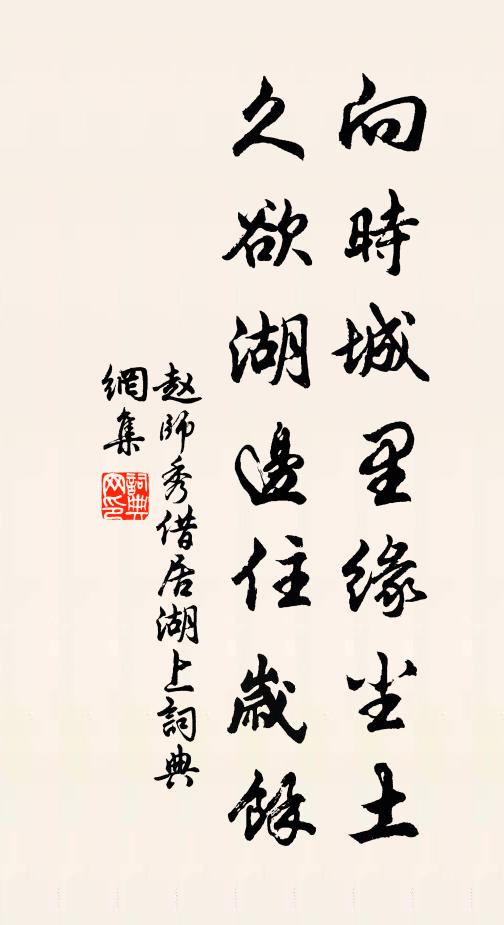 向時城里緣尘土
久欲湖邊住歲餘
赵師秀借居湖上詞典
網集
詞典
网印